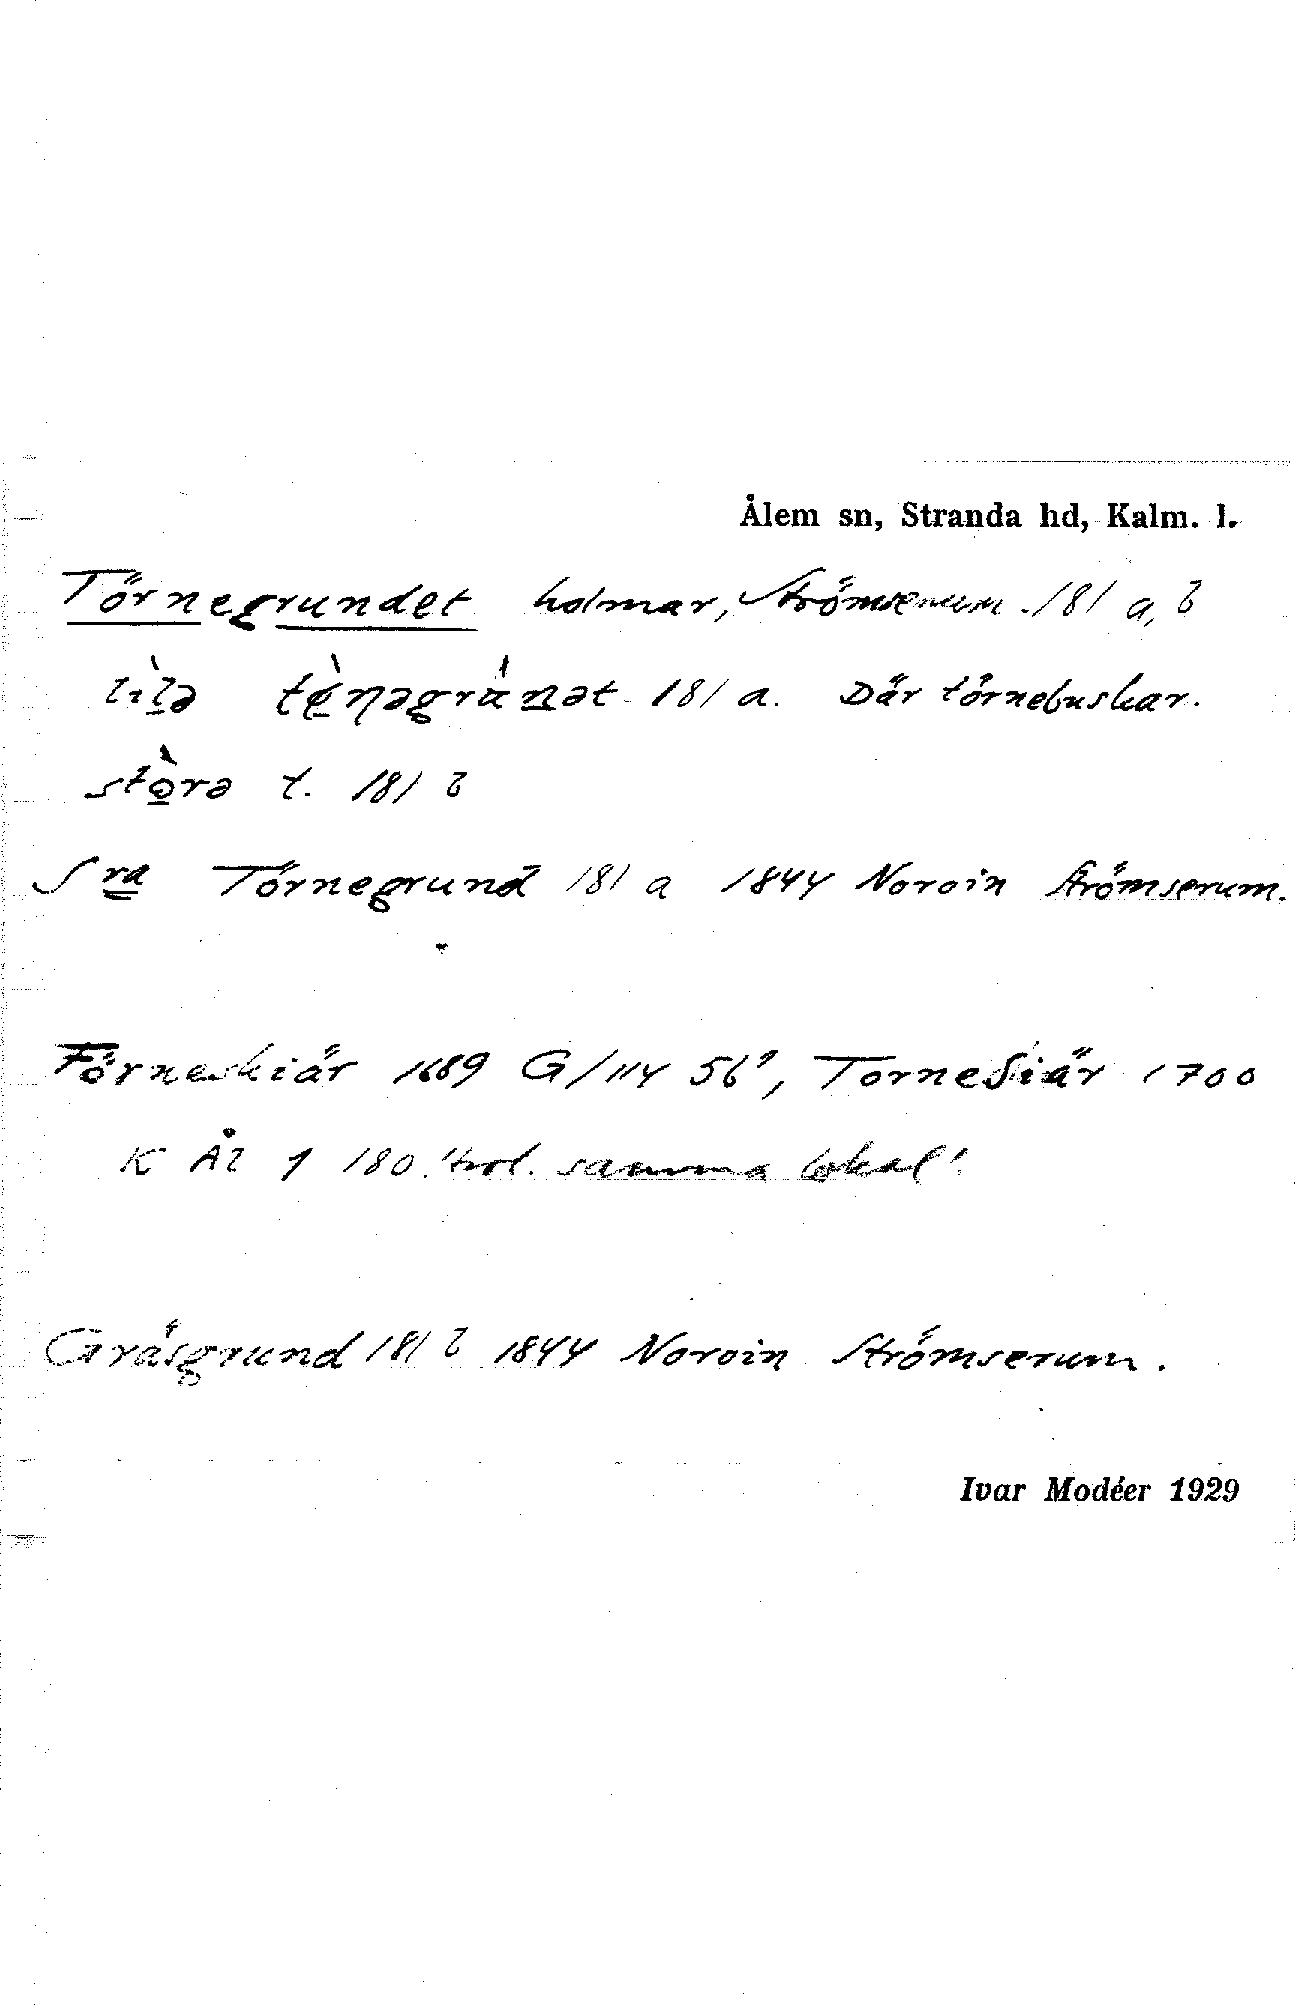 Ålem sn, Stranda hd, Kalm. l.
Törnegrundet holmar, Strömserum 181 a, b
lilə tɵ̀ṇəgrànət 181 a. Där törnebuskar.
stòrə t. 181 b
Sra Törnegrund 181 a 1844 Noroin Strömserum.
Förneskiär 1689 G/114 56², Torneskiär 1700
K Ål 1 180 'trol. samma lokal'.
Gräsgrund 181 b 1844 Noroin Strömserum.
Ivar Modéer 1929